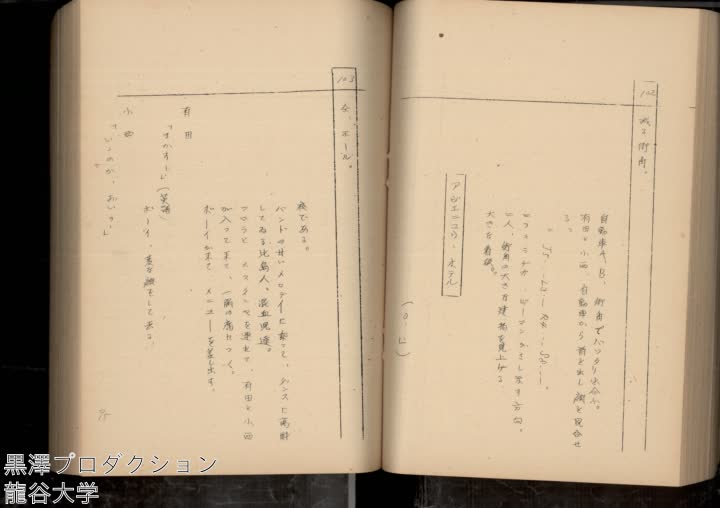 102
或る街角。
自動車A、B、街角でバッタリ出会ふ。
有田と小西、自動車から首を出し顔を見合せ
る。
二人、街角の大きな建物を見上げる。
大きな看板。
アジエニコウ・ホテル
(O・L)
103
仝、ホール。
夜である。
バンドの甘いメロディに乗って、ダンスに陶酔
してゐる比島人。混血児達。
フロラと メスチソを連れて、有田と小西
が入って来て、一隅の席につく。
ボーイが来て、メニューを差し出す。
有田
(英語)
ボーイ、変な顔をして去る。
小西
「いゝのか、おい」
95
黒澤プロダクション
龍谷大学